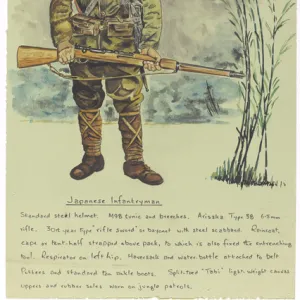 Japanese Infantryman.
Standard steel helmet. M98 tunic and breeches. Arisaka Type 38 6·5mm
rifle. 30th year type "rifle sword" or bayonet with steel scabbard. Raincoat,
cape or tent-half strapped above pack, to which is also fixed the entrenching
tool. Respirator on left hip. Haversack and water bottle attached to belt
Puttees and standard tan ankle boots. Split-toed "Tabi" light-weight canvas
uppers and rubber soles worn on jungle patrols.